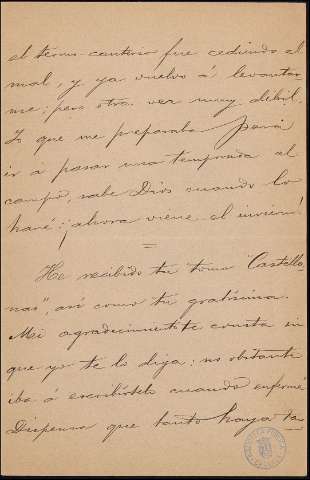 el termo-cauterio fue cediendo el
mal, y ya vuelvo á levantar-
me; pero otra vez muy débil.
Yo que me preparaba para
ir á pasar una temporada al
campo, sabe Dios cuando lo
haré; ¡ahora viene el invierno!
=
He recibido tu tomo "Castella-
nas", así como tu gratísima.
Mi agradecimiento te consta sin
que yo te lo diga; no obstante
iba á escribírtelo cuando enfermé
Dispensa que tanto haya ta-